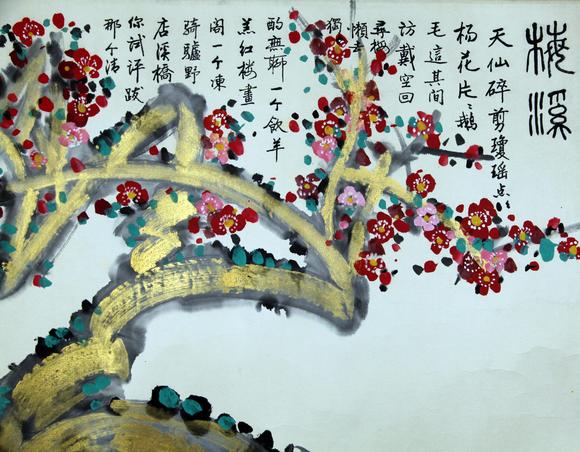 梅溪
天仙碎剪瓊瑤点〻
楊花片〻鵝
毛這其間
訪戴空回
尋梅
懶去
獨
酌無聊一个飲羊
羔紅樓畫
閣一个凍
騎驢野
店溪橋
你試評跋
那个清